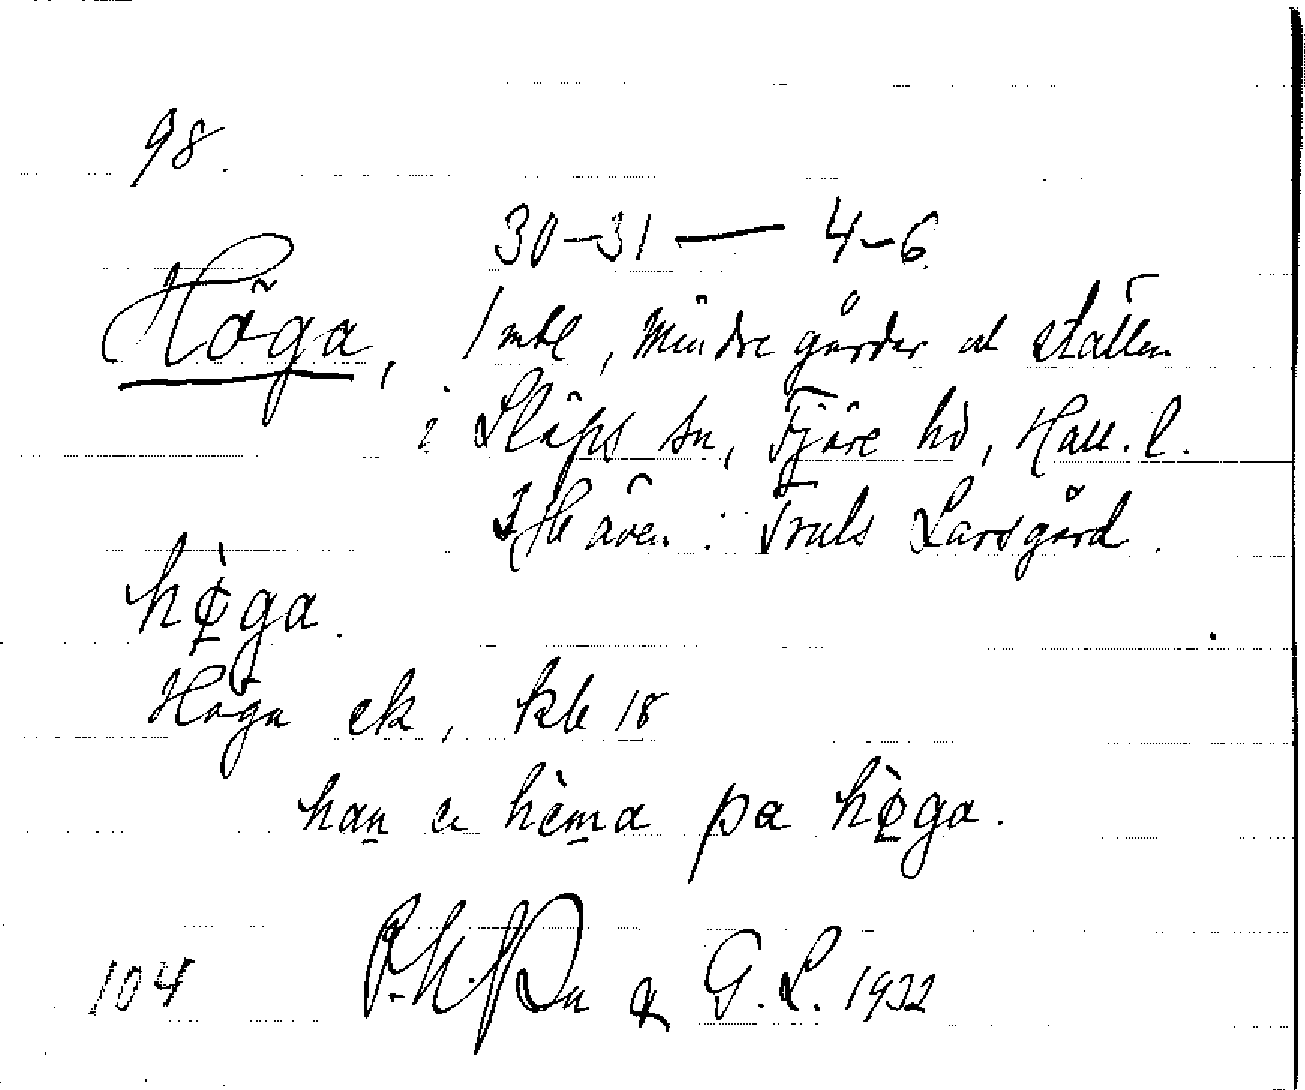 98.
30-31 — 4-6
Höga, 1 mtl, mindre gårder ställen
i Släps sn, Fjäre hd, Hall. l.
även: Truls Larsgård.
hø̀ga.
Höga ek, kbl 18
han hèma pa hø̀ga.
104 G.L. 1932